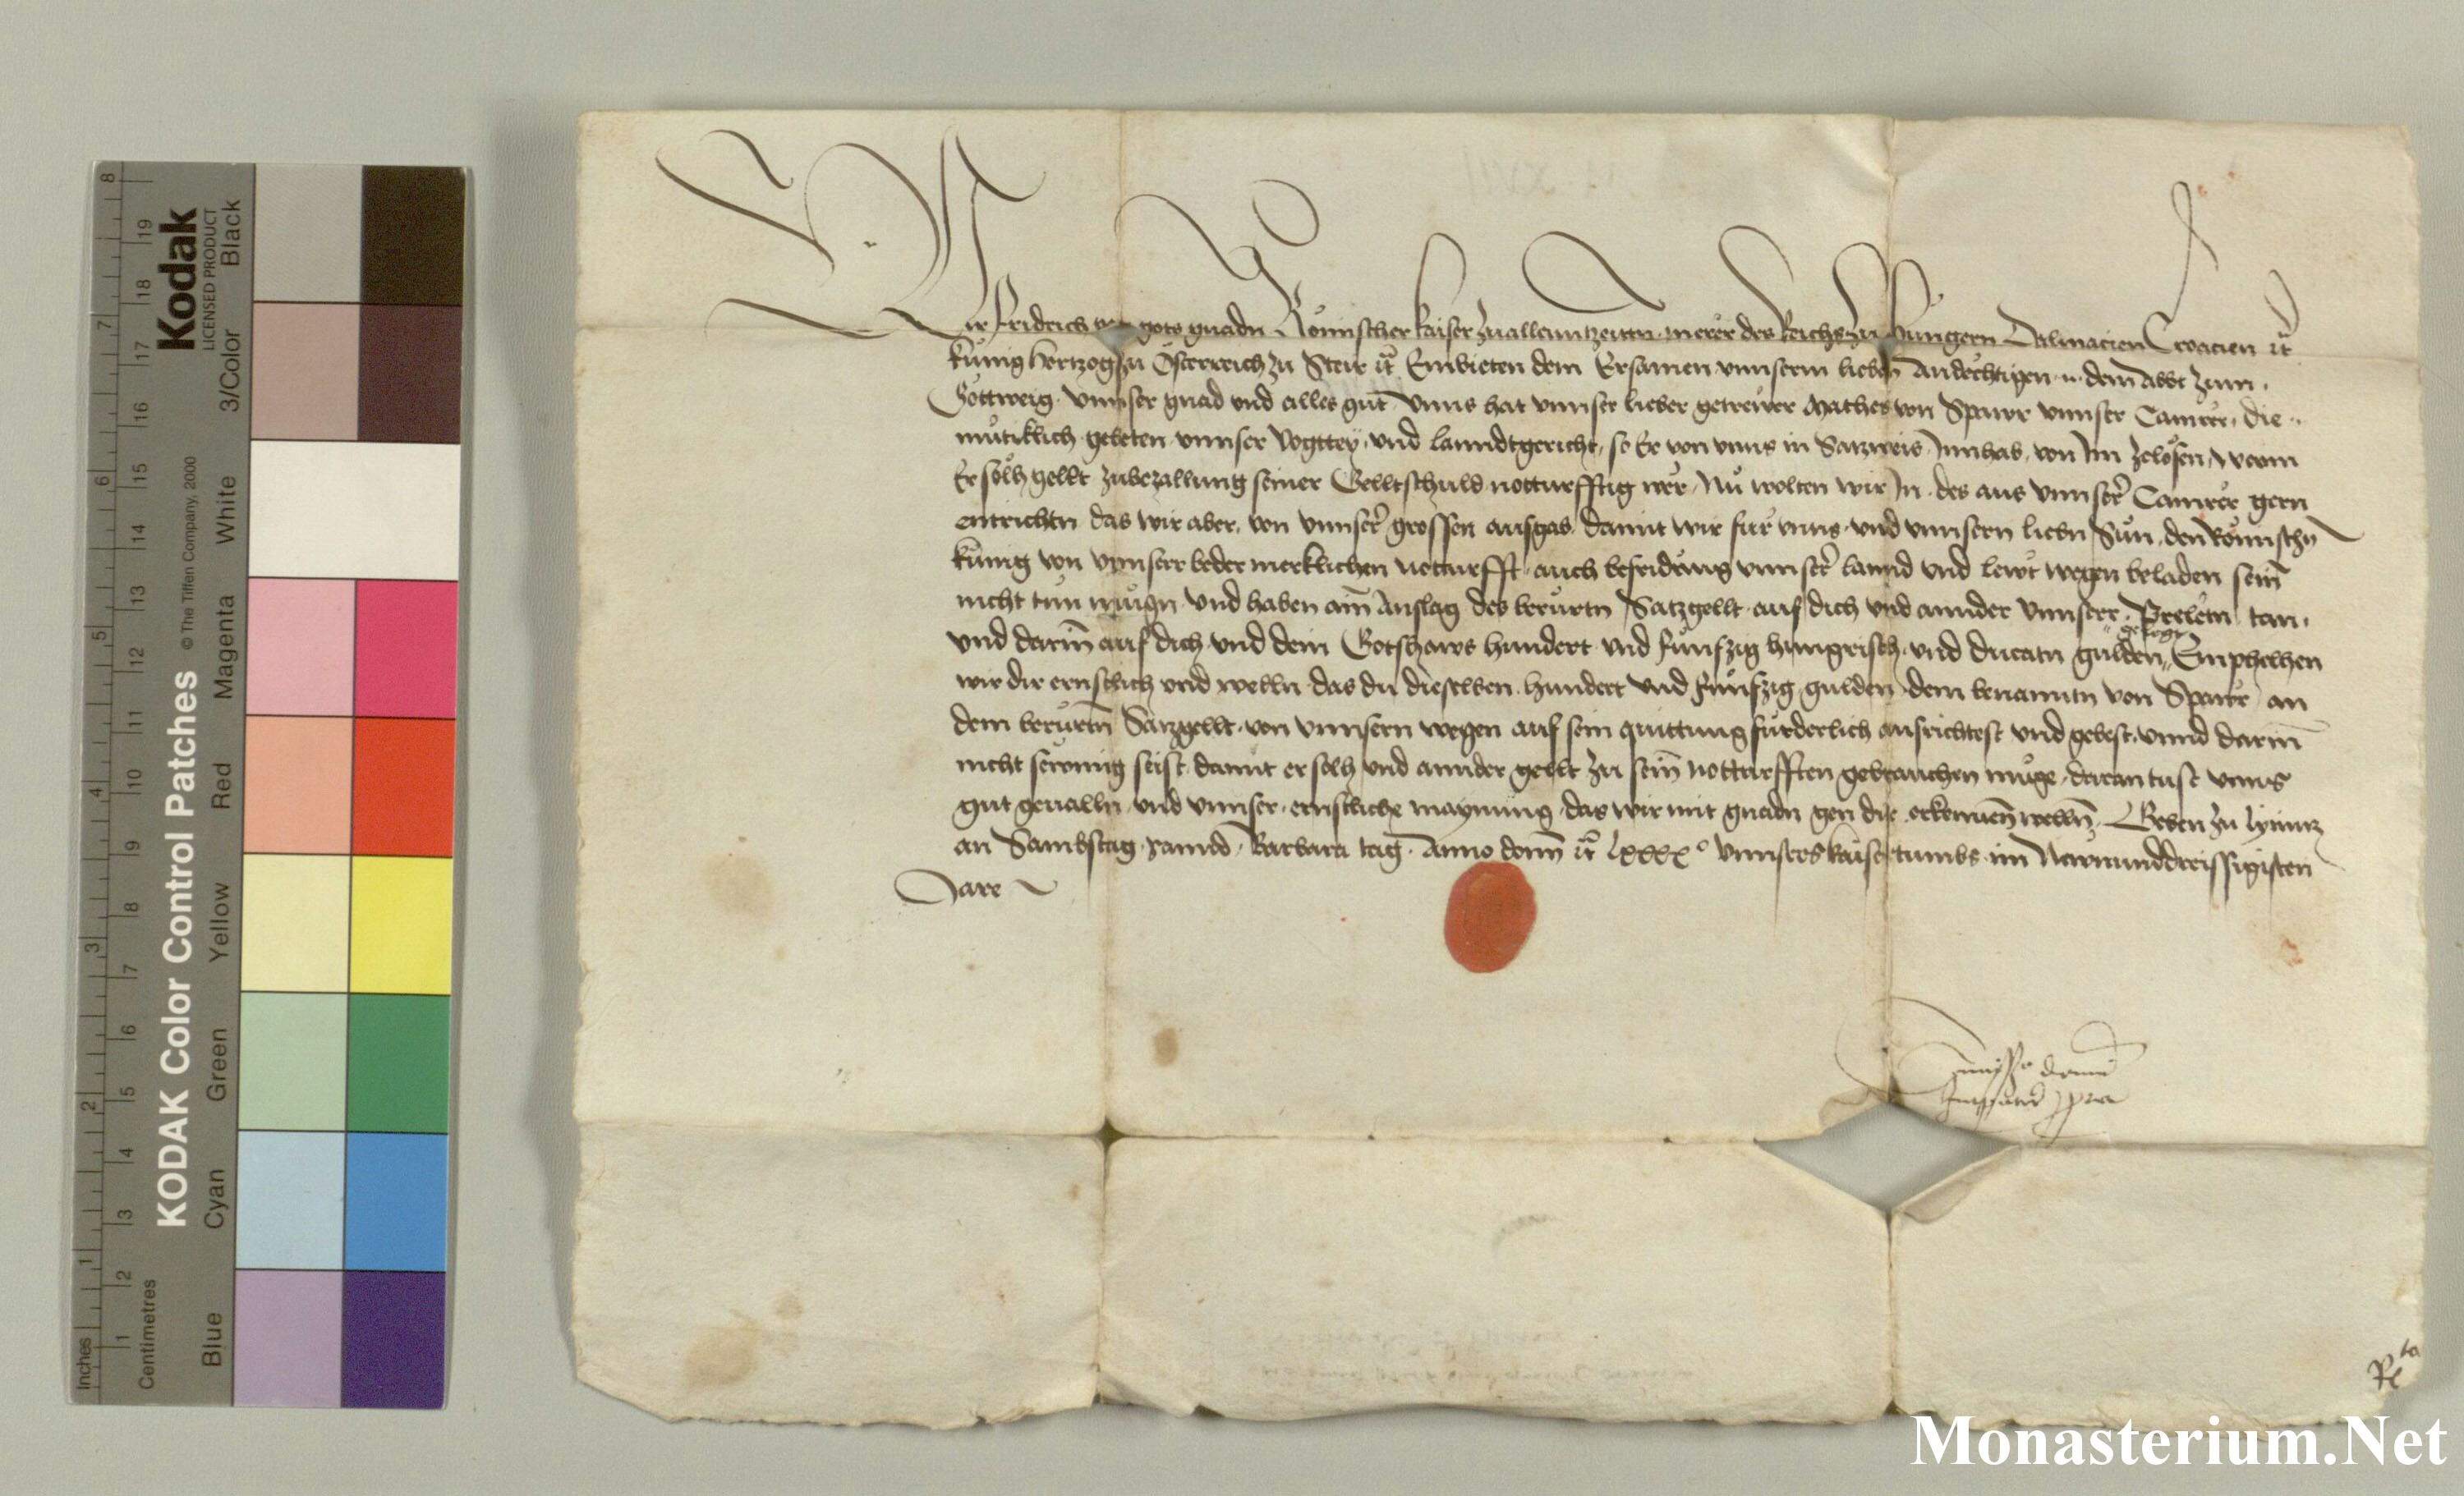 Wir Fridrich von gots gnadn Römischer kaiser zuallenntzeitn merer des Reichs zu Hungern Dalmacien Croacien ꝛc
künig Hertzog zu Österreich zu Steir ꝛc Embieten dem Ersamen unnserm lieben Andechtigen n. dem Abbt zum
Göttweig unnser gnad und alles gut Unns hat unnser lieber getrewer Mathes von Spaur unnser Camrer, die
mütiklich gebeten unnser Vogttey und lanndtgericht, so Er von unns in Satzweis Innhab, von Im zelösen, wann
Er solh gellt zubezallung seiner Gelltschuld notturfftig wer, Nu wolten wir In des aus unnser Camrer gern
entrichtn das wir aber, von unnser grossen ausgab, damit wir für unns und unnsern liebn Sun, den Römischn
künig von unnserr beder merklichen notturfft auch befridung unnser lannd und lewt wegen beladen sein
nicht tun mügn und haben ain Anslag des berürtn Satzgellt auf dich und annder unnserr Preletn tan,
und darin auf dich und dein Gotshaws hundert und fünfzig hungrisch und ducatn gulden gelegt Emphelhen
wir dir ernstlich und welln das du dieselben hundert und fünfzig gulden dem benanntn von Spaur an
dem berürtn Satzgellt von unnsern wegen auf sein quittung fürderlich ausrichtest und gebest, unnd darin
nicht sewmig seist damit er solh und annder gellt zu sein notturfften gebrauchen müge, daran tust unns
gut geualln und unnser ernstliche maynung das wir mit gnadn gen dir erkennen welln, Geben zu Lynntz
an Sambstag sannd Barbara tag Anno domi ꝛc lxxxx° Unnsers kaisertumbs im Newnunddreissigisten
Jare
Commissio domini
Imperatoris propria
Rta
KODAK Color Control Patches
© The Tiffen Company, 2000
Kodak
LICENSED PRODUCT
Inches 1 2 3 4 5 6 7 8
Centimetres 1 2 3 4 5 6 7 8 9 10 11 12 13 14 15 16 17 18 19
Blue Cyan Green Yellow Red Magenta White 3/Color Black
Monasterium.Net